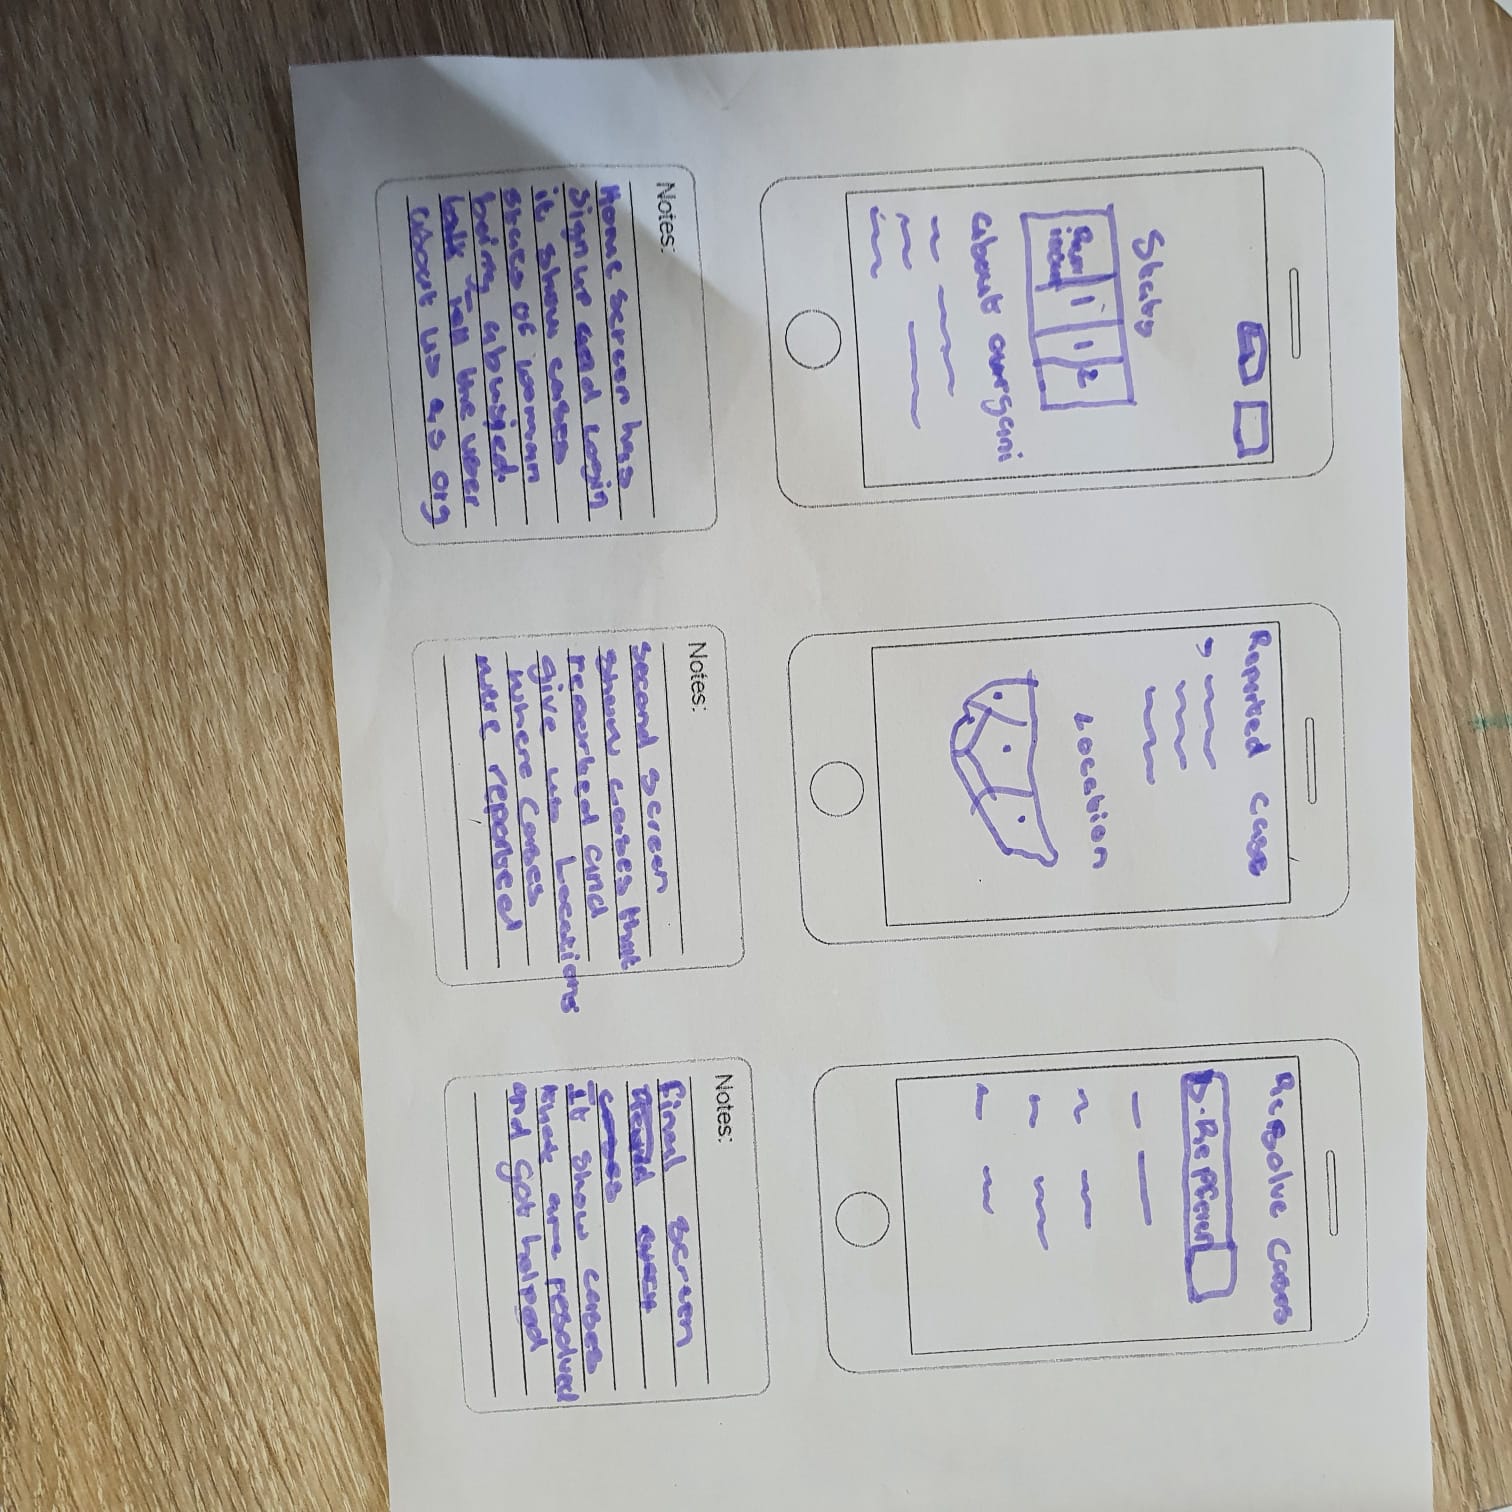 Stats
1 1 2
about orrgani
Notes:
Home screen has
sign up and login
it show cases
stats of woman
being abusjed.
talk tell the user
about us as org
Reported case
Location
Notes:
second screen
show cases that
reported and
give us Locations
where cases
were reported
Resolve cases
Notes:
final screen
cases
It show cases
that are resolved
and got helped